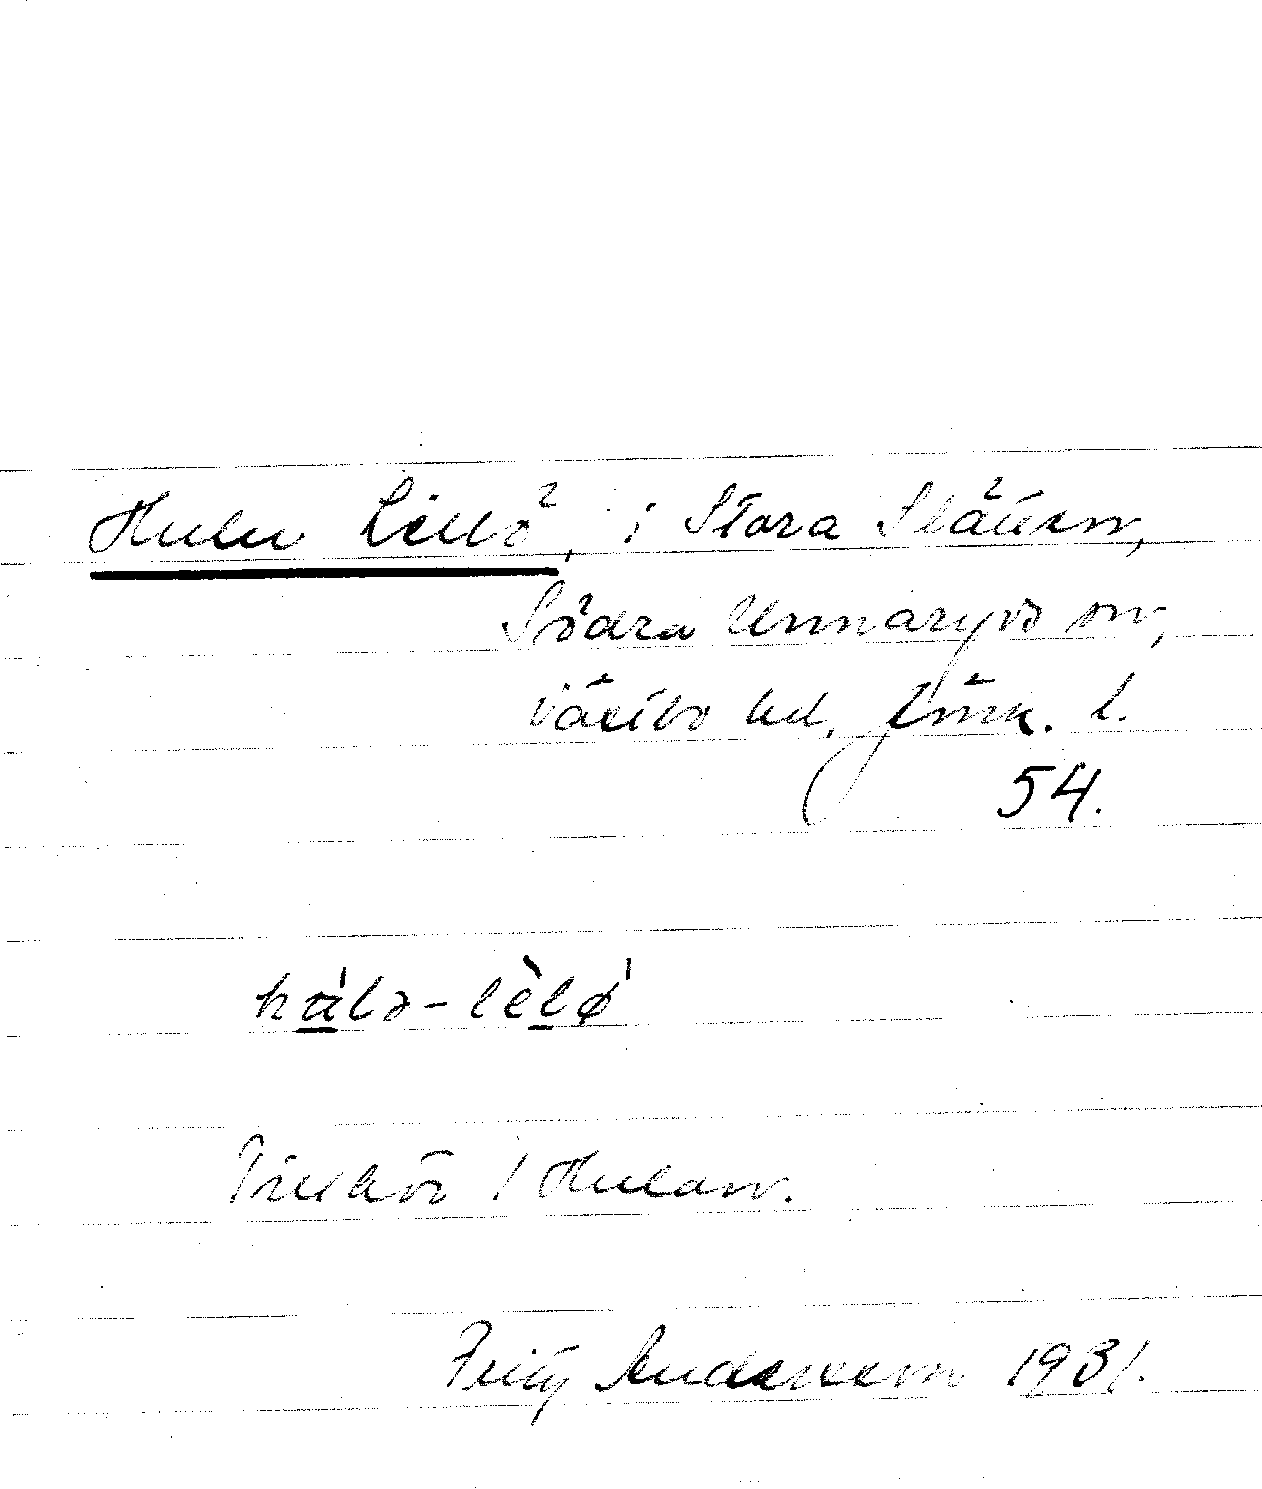 Hulu Lillö, i Stora Slätten,
Södra Unnaryds sn,
Västbo hd, Jönk. l.
54.
hùlə-lèlø
Tillhör / Hulan.
Fritz Andersson 1931.